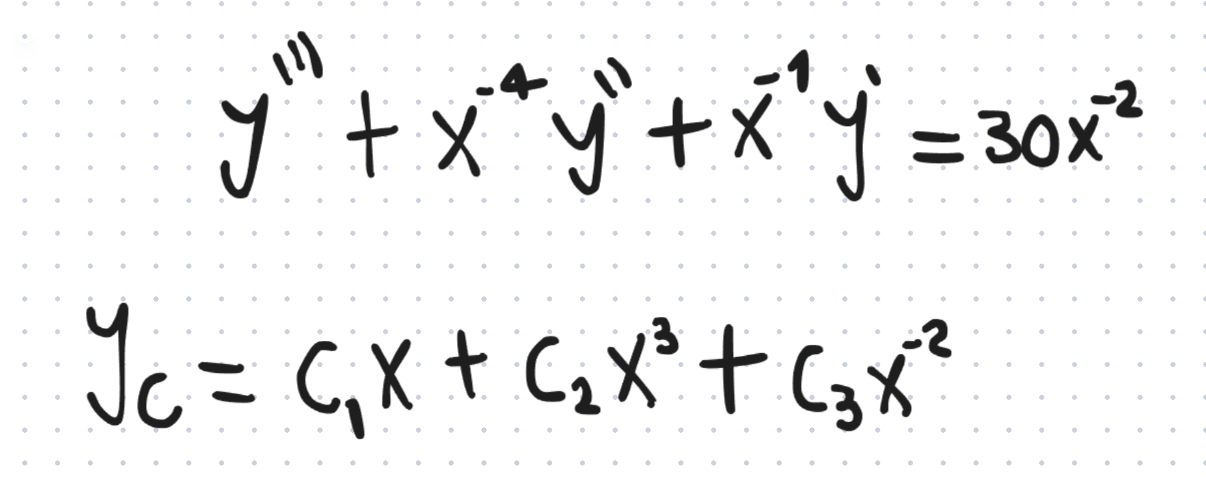 y''' + x⁻⁴y'' + x⁻¹y' = 30x⁻²
y_c = c₁x + c₂x³ + c₃x⁻²